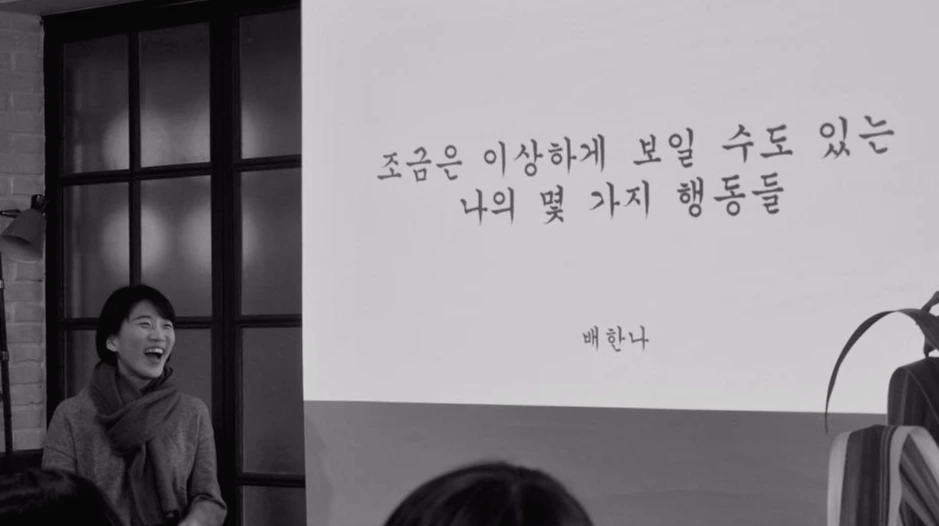 조금은 이상하게 보일 수도 있는
나의 몇 가지 행동들
배한나